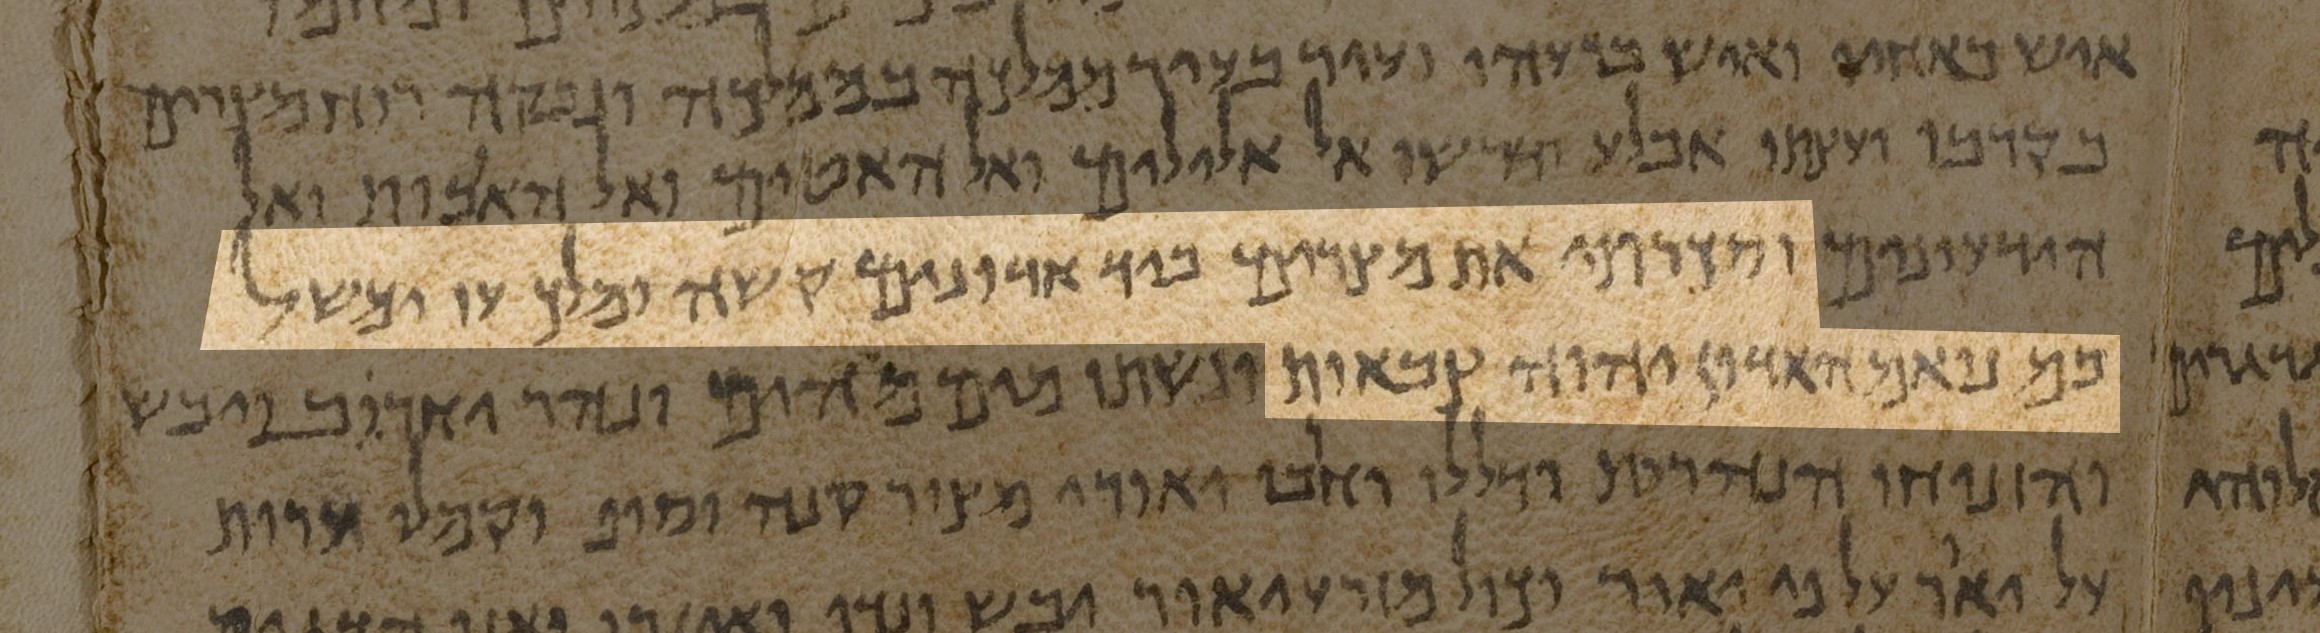 איש באחיו ואיש ברעהו ועיר בעיר ממלכה בממלכה ונבקה רוח מצרים
בקרבו ועצתו אבלע ודרשו אל אלילים ואל האטים ואל האבות ואל
הידעונים וסכרתי את מצרים ביד אדונים קשה ומלך עז ימשל
במ נואם האדון יהוה צבאות ונשתו מים מהים ונהר יחרב ויבש
והזניחו הנהרות ודללו וחרבו יאורי מצור קנה וסוף וקמלו ערות
על יאר על פי יאור וכול מזרע יאור יבש